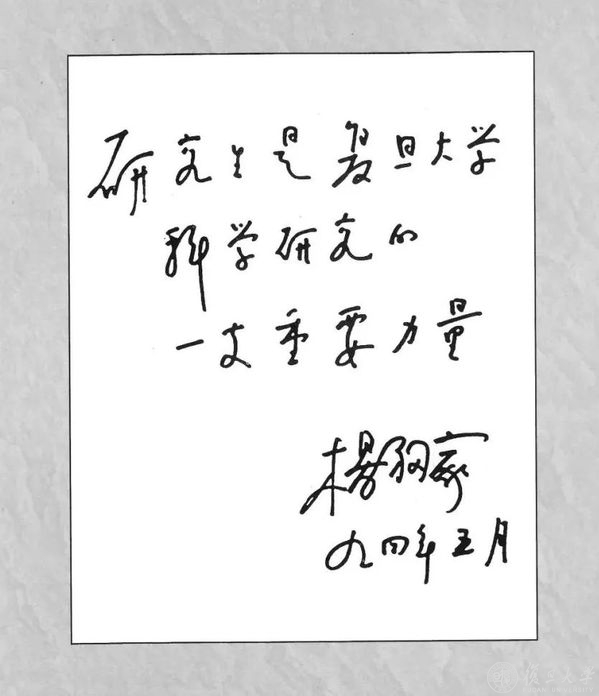 研究生是复旦大学
科学研究的
一支重要力量
楊福家
九四年五月
復旦大學